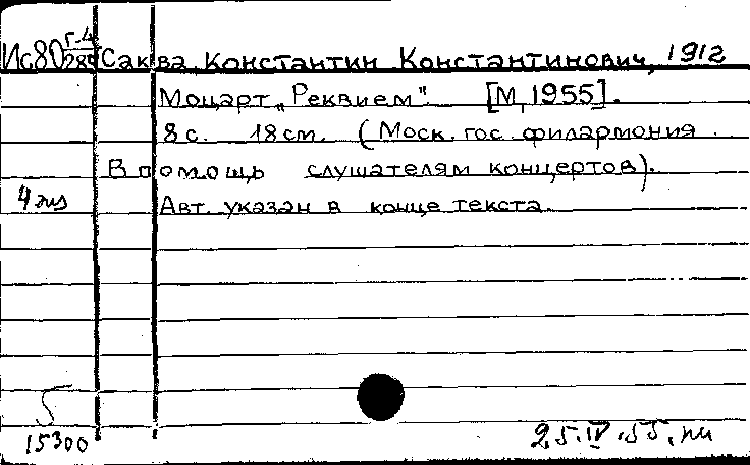 Ис80 Г-4/284 Саква Константин Константинович, 1912
Моцарт „Реквием". [М, 1955].
8 с. 18 см. (Моск. гос. филармония.
В помощь слушателям концертов).
4 экз Авт. указан в конце текста.
5
15300
25.IV.55.